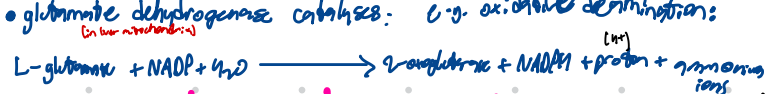 • glutamate dehydrogenase catalyses: e.g. oxidative deamination:
(in liver mitochondria)
(H+)
L-glutamate + NADP + H2O ⟶ 2-oxoglutarate + NADPH + proton + ammonium
ions